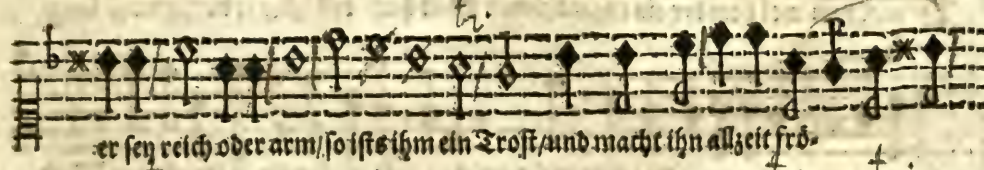 er sey reich oder arm/ so ists ihm ein Trost/ und macht ihn allzeit frö-